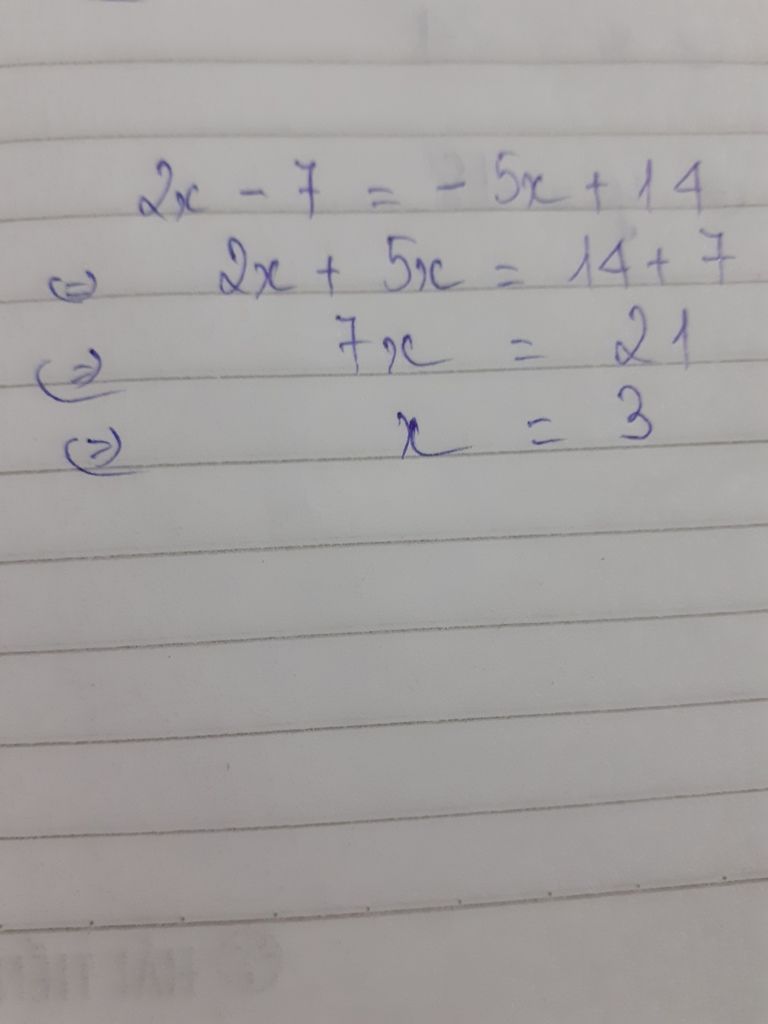 2x - 7 = - 5x + 14
⇔ 2x + 5x = 14 + 7
⇔ 7x = 21
⇔ x = 3